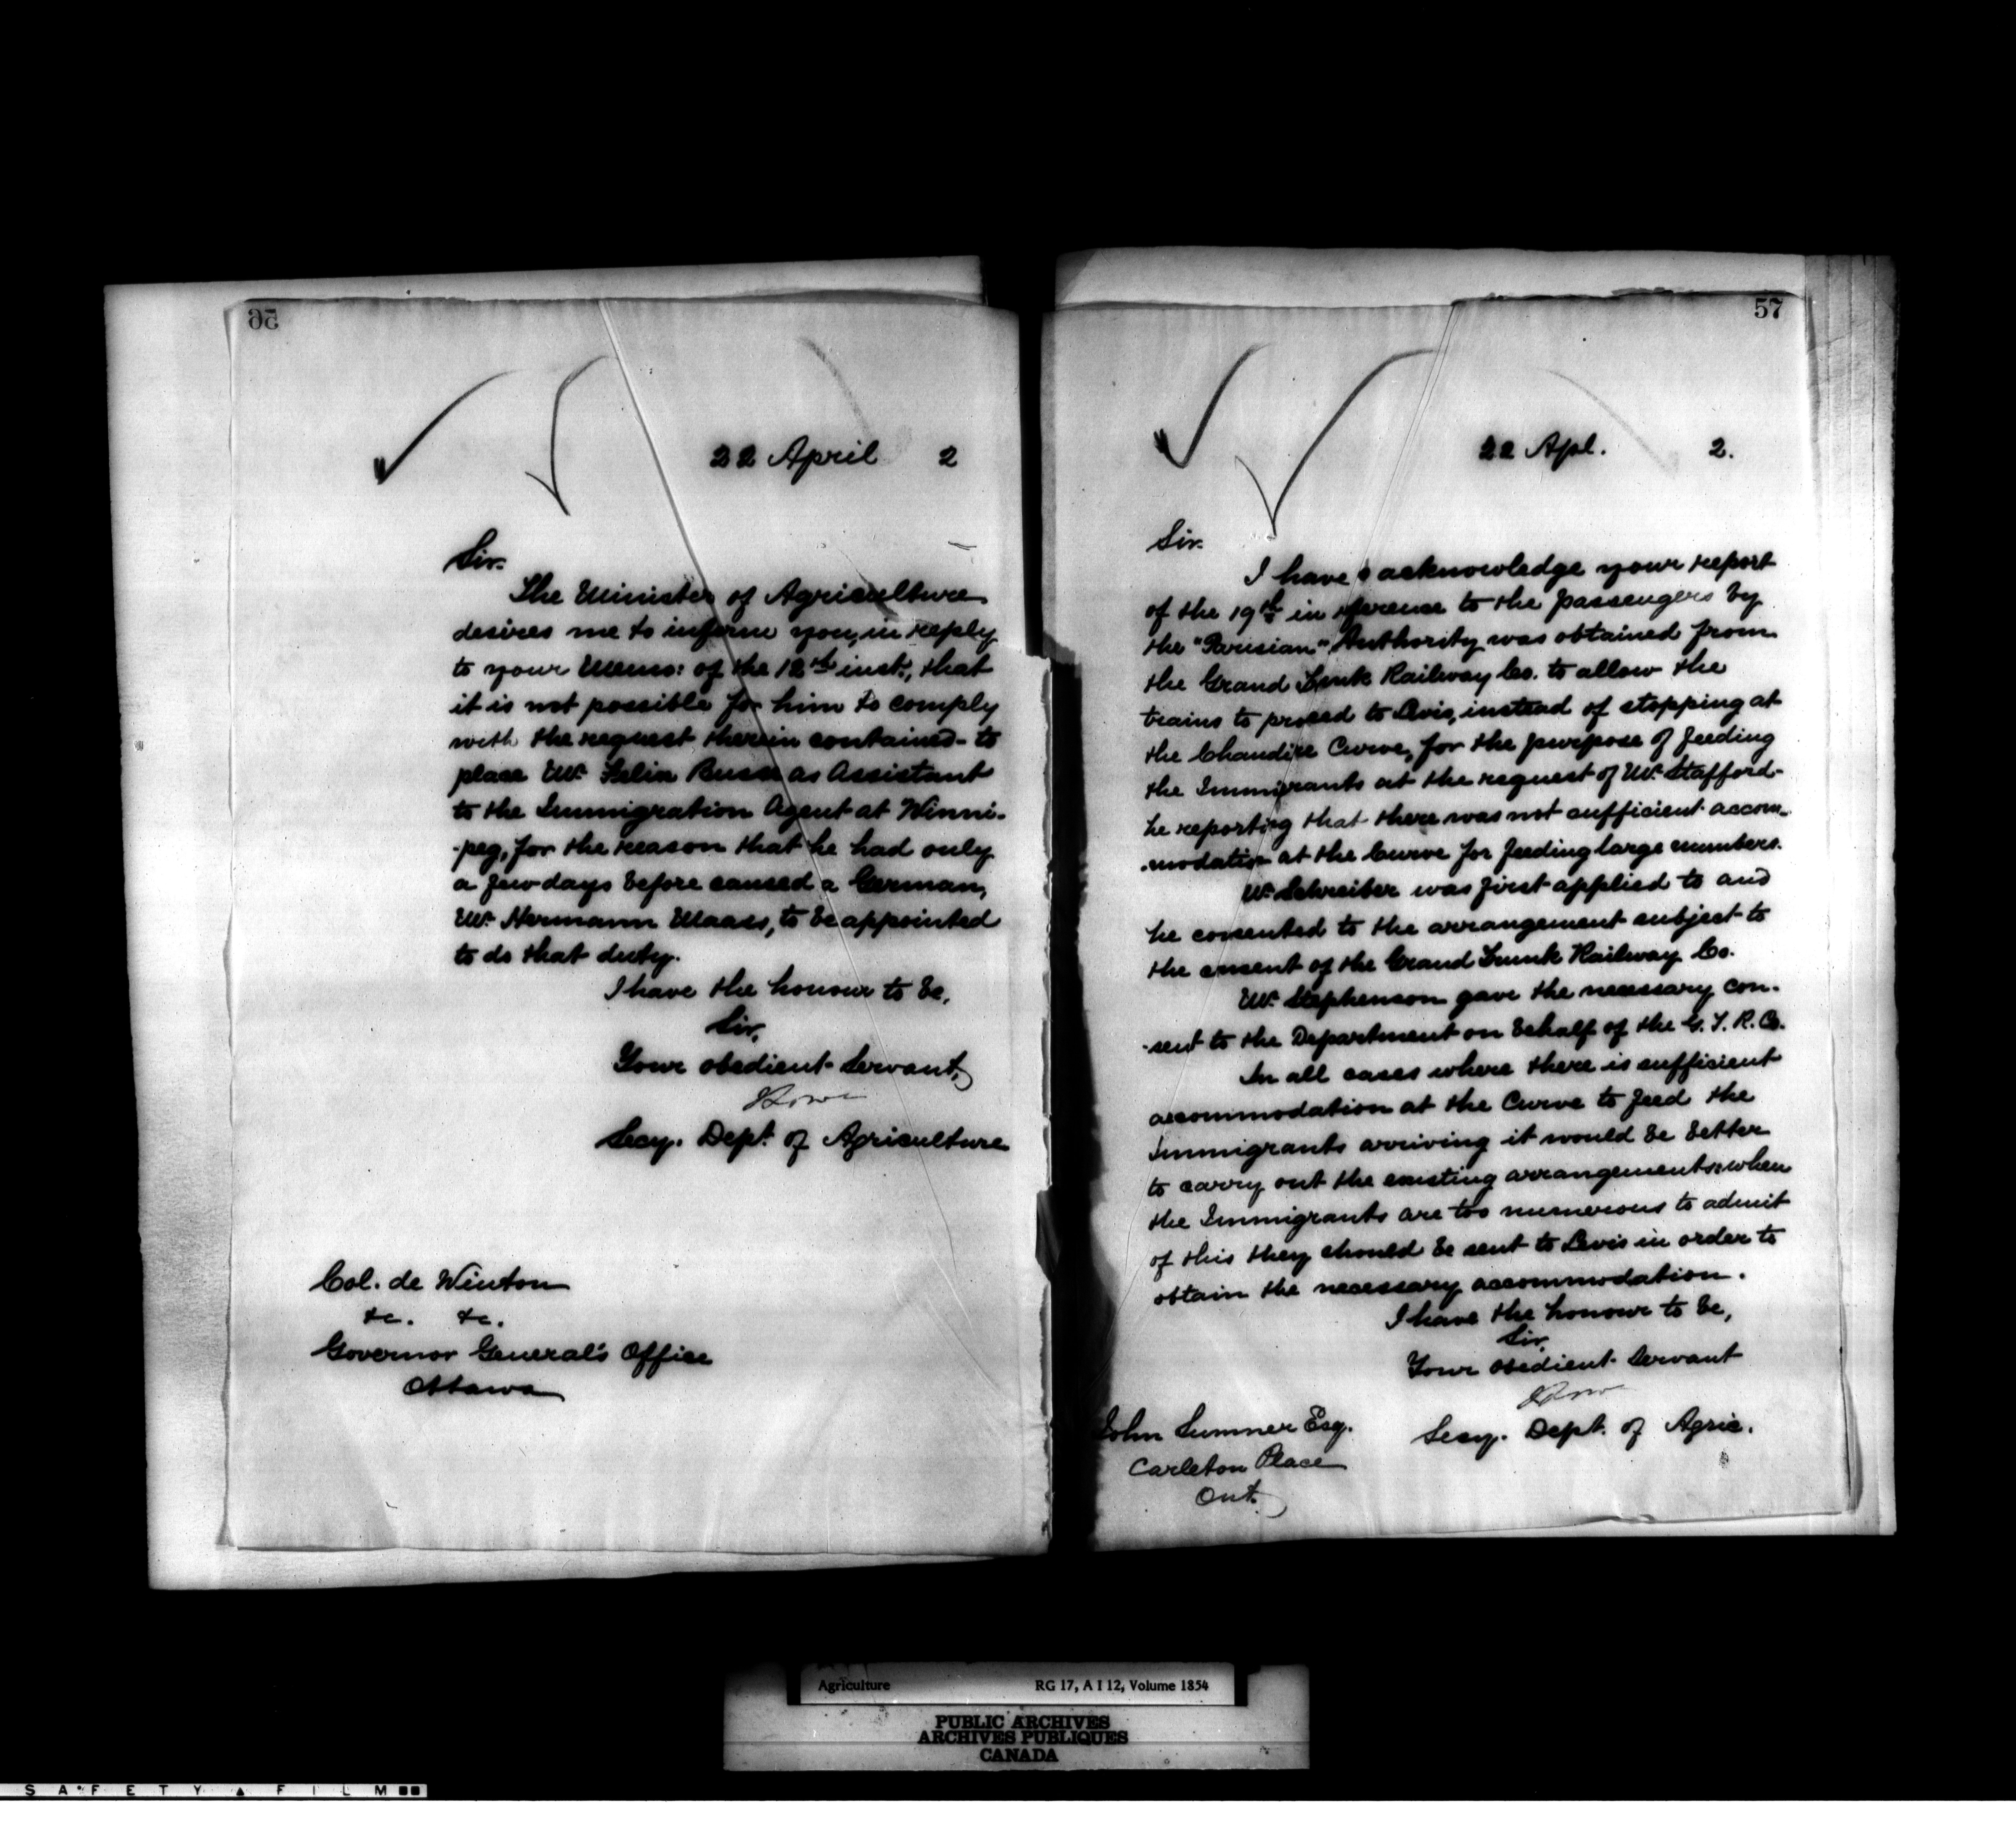 56
22 April 2
Sir.
The Minister of Agriculture
desires me to inform you, in reply
to your Memo: of the 12th inst., that
it is not possible for him to comply
with the request therein contained - to
place Mr. Felix as Assistant
to the Immigration Agent at Winni-
-peg, for the reason that he had only
a few days before caused a German,
Mr. Hermann Maass, to be appointed
to do that duty.
I have the honour to be,
Sir,
Your obedient Servant,
Secy. Dept. of Agriculture
Col. de Winton
&c. &c.
Governor General's Office
Ottawa
57
22 Apl. 2.
Sir.
I have to acknowledge your report
of the 19th in reference to the passengers by
the "Parisian". Authority was obtained from
the Grand Trunk Railway Co. to allow the
trains to proceed to Levis, instead of stopping at
the Chaudiere Curve, for the purpose of feeding
the Immigrants at the request of Mr. Stafford -
he reporting that there was not sufficient accom-
-modation at the Curve for feeding large numbers.
Mr. Schreiber was first applied to and
he consented to the arrangement subject to
the consent of the Grand Trunk Railway Co.
Mr. Stephenson gave the necessary con-
-sent to the Department on behalf of the G. T. R. Co.
In all cases where there is sufficient
accommodation at the Curve to feed the
Immigrants arriving it would be better
to carry out the existing arrangements: when
the Immigrants are too numerous to admit
of this they should be sent to Levis in order to
obtain the necessary accommodation.
I have the honour to be,
Sir,
Your obedient Servant
Secy. Dept. of Agric.
John Sumner Esq.
Carleton Place
Ont.
Agriculture RG 17, A I 12, Volume 1854
PUBLIC ARCHIVES
ARCHIVES PUBLIQUES
CANADA
SAFETY FILM